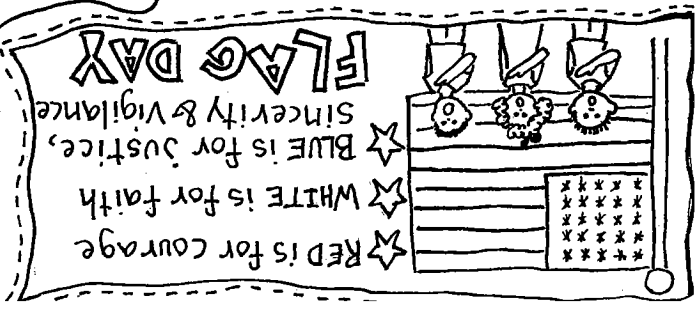 RED is for courage
WHITE is for faith
BLUE is for Justice,
Sincerity & Vigilance
FLAG DAY